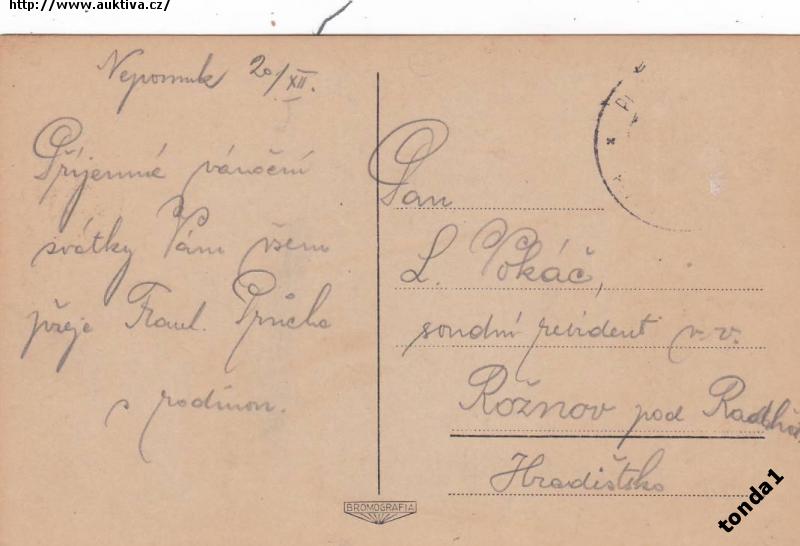 http://www.auktiva.cz/
Nepomuk 20/XII.
Příjemné vánoční
svátky Vám všem
přeje Průcha
s rodinou.
Pan
L. Vokáč,
soudní revident v.v.
Rožnov pod Radhoš
Hradištko
BROMOGRAFIA
tonda1